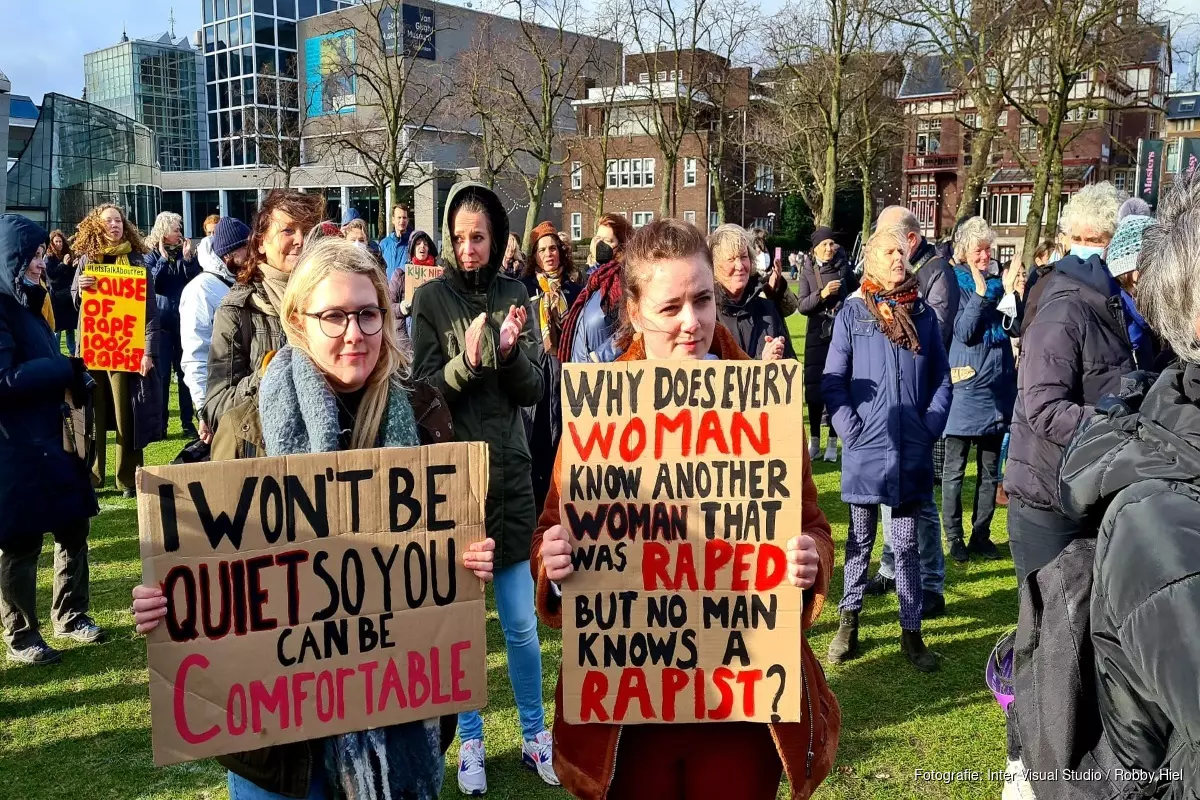 Van
Gogh
Museum
#LetsTalkAboutYes
CAUSE
OF
RAPE
100%
RAPIST
I WON'T BE
QUIET SO YOU
CAN BE
COMFORTABLE
WHY DOES EVERY
WOMAN
KNOW ANOTHER
WOMAN THAT
WAS RAPED
BUT NO MAN
KNOWS A
RAPIST?
Fotografie: Inter Visual Studio / Robby Hiel